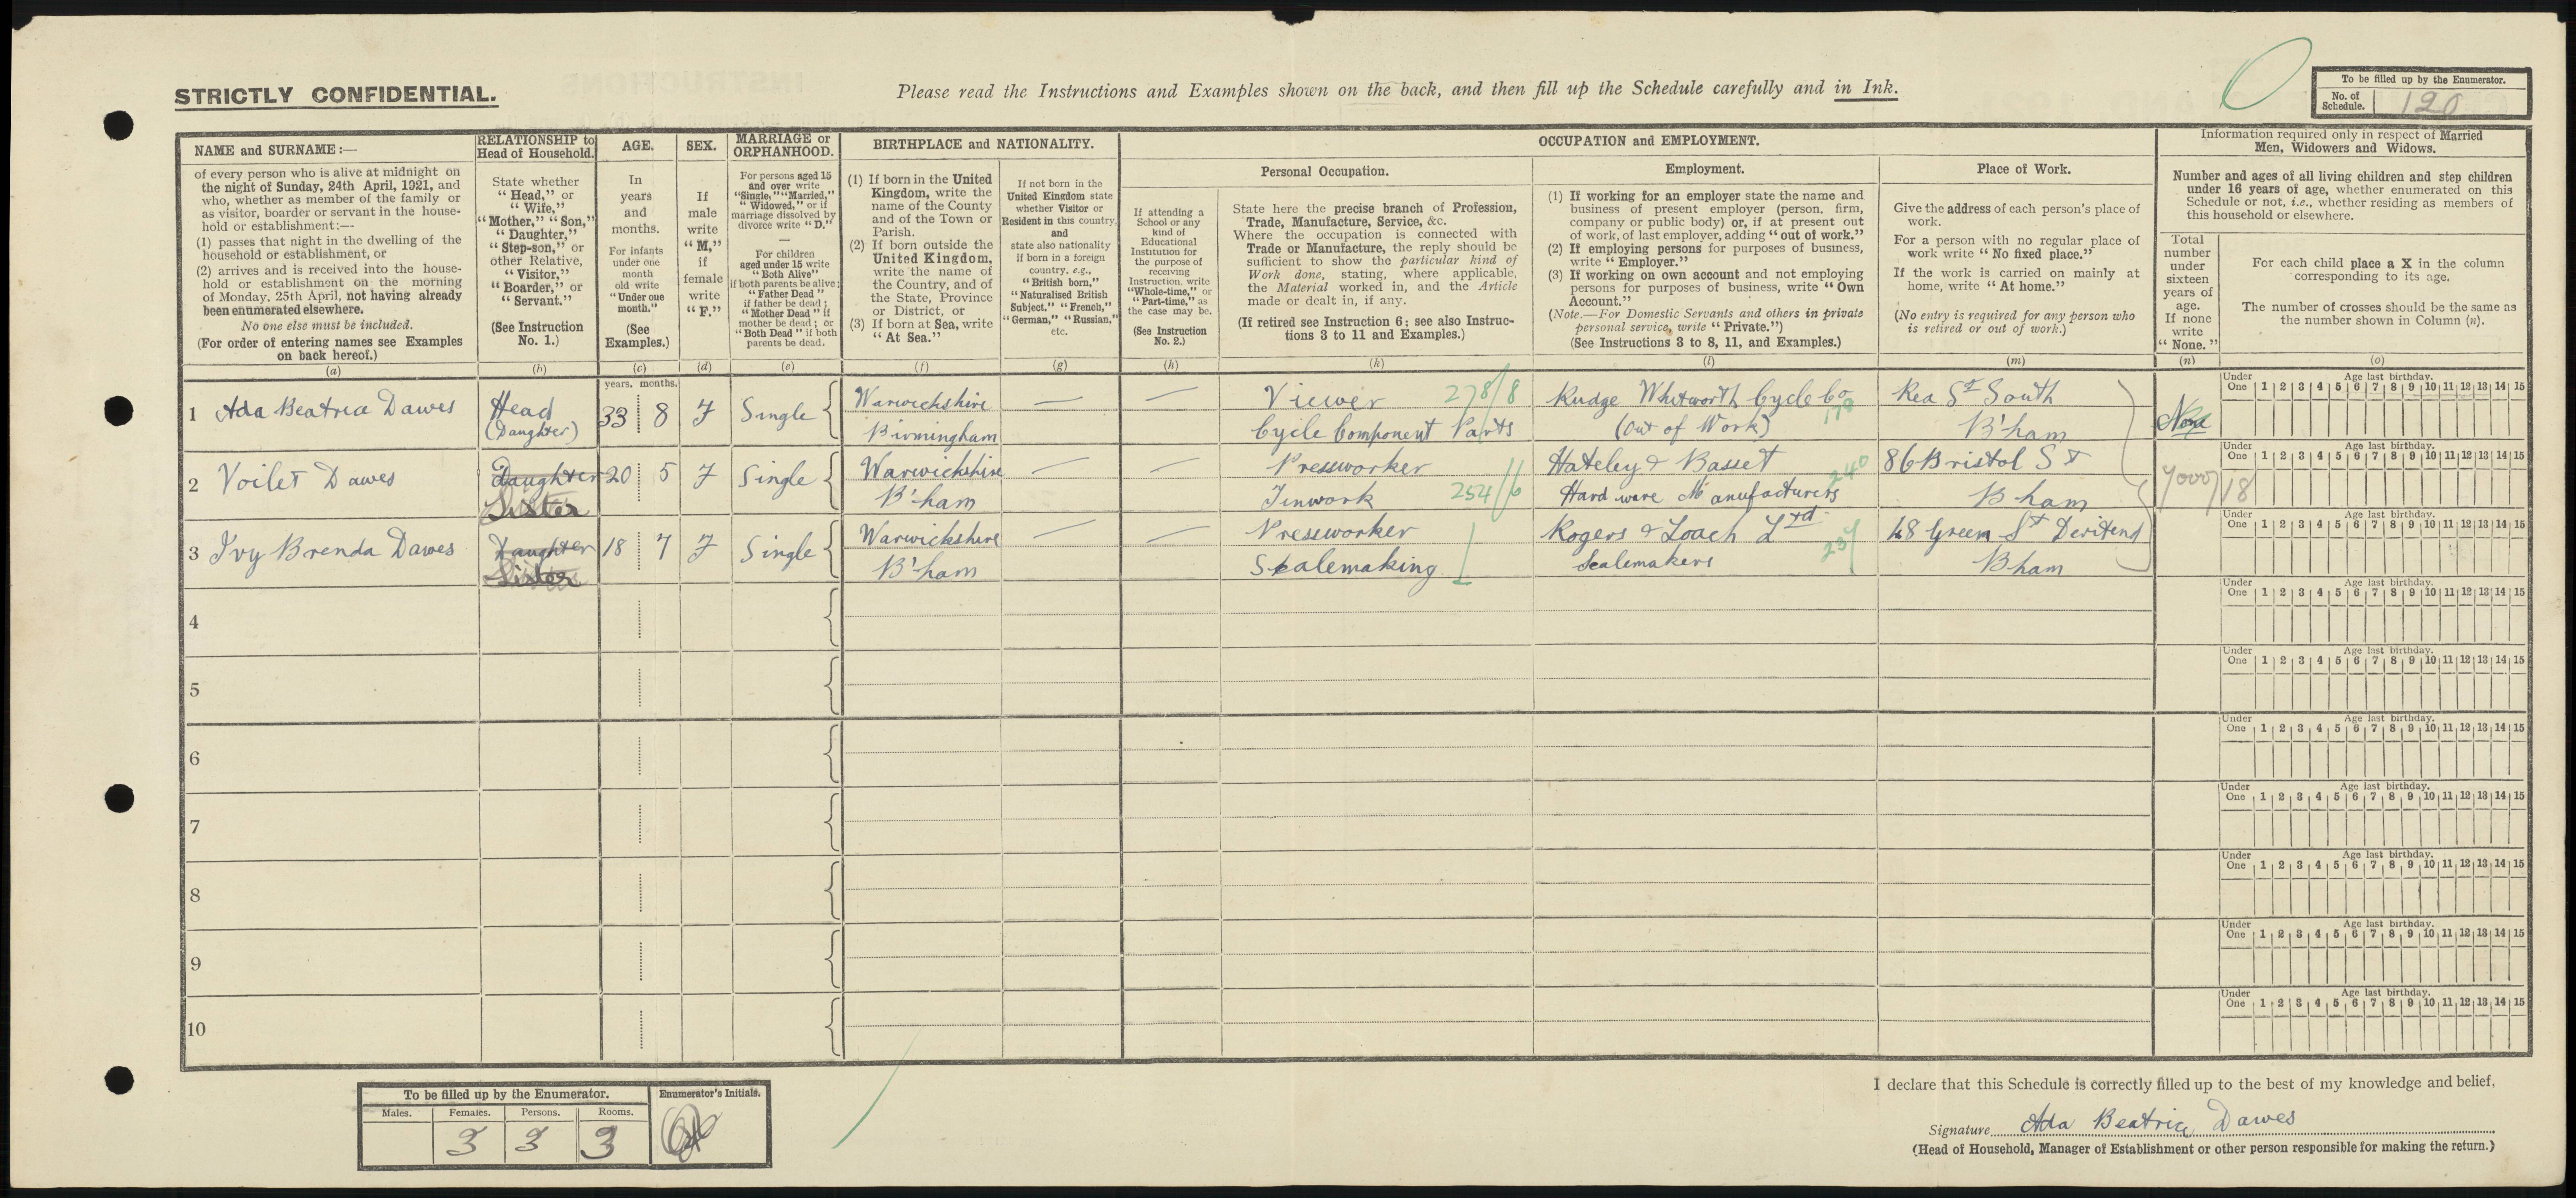 STRICTLY CONFIDENTIAL.
Please read the Instructions and Examples shown on the back, and then fill up the Schedule carefully and in Ink.
To be filled up by the Enumerator.
No. of Schedule. 120
NAME and SURNAME:—
of every person who is alive at midnight on
the night of Sunday, 24th April, 1921, and
who, whether as member of the family or
as visitor, boarder or servant in the house-
hold or establishment:—
(1) passes that night in the dwelling of the
household or establishment, or
(2) arrives and is received into the house-
hold or establishment on the morning
of Monday, 25th April, not having already
been enumerated elsewhere.
No one else must be included.
(For order of entering names see Examples
on back hereof.)
(a)
RELATIONSHIP to
Head of Household.
State whether
"Head," or
"Wife,"
"Mother," "Son,"
"Daughter,"
"Step-son," or
other Relative,
"Visitor,"
"Boarder," or
"Servant."
(See Instruction
No. 1.)
(b)
AGE.
In
years
and
months.
For infants
under one
month
old write
"Under one
month."
(See
Examples.)
(c)
SEX.
If
male
write
"M,"
if
female
write
"F."
(d)
MARRIAGE or
ORPHANHOOD.
For persons aged 15
and over write
"Single," "Married,"
"Widowed," or if
marriage dissolved by
divorce write "D."
—
For children
aged under 15 write
"Both Alive"
if both parents be alive;
"Father Dead"
if father be dead;
"Mother Dead" if
mother be dead; or
"Both Dead" if both
parents be dead.
(e)
BIRTHPLACE and NATIONALITY.
(1) If born in the United
Kingdom, write the
name of the County
and of the Town or
Parish.
(2) If born outside the
United Kingdom,
write the name of
the Country, and of
the State, Province
or District, or
(3) If born at Sea, write
"At Sea."
(f)
If not born in the
United Kingdom state
whether Visitor or
Resident in this country,
and
state also nationality
if born in a foreign
country, e.g.,
"British born,"
"Naturalised British
Subject," "French,"
"German," "Russian,"
etc.
(g)
OCCUPATION and EMPLOYMENT.
If attending a
School or any
kind of
Educational
Institution for
the purpose of
receiving
Instruction, write
"Whole-time," or
"Part-time," as
the case may be.
(See Instruction
No. 2.)
(h)
Personal Occupation.
State here the precise branch of Profession,
Trade, Manufacture, Service, &c.
Where the occupation is connected with
Trade or Manufacture, the reply should be
sufficient to show the particular kind of
Work done, stating, where applicable,
the Material worked in, and the Article
made or dealt in, if any.
(If retired see Instruction 6; see also Instruc-
tions 3 to 11 and Examples.)
(k)
Employment.
(1) If working for an employer state the name and
business of present employer (person, firm,
company or public body) or, if at present out
of work, of last employer, adding "out of work."
(2) If employing persons for purposes of business,
write "Employer."
(3) If working on own account and not employing
persons for purposes of business, write "Own
Account."
(Note.—For Domestic Servants and others in private
personal service, write "Private.")
(See Instructions 3 to 8, 11, and Examples.)
(l)
Place of Work.
Give the address of each person's place of
work.
For a person with no regular place of
work write "No fixed place."
If the work is carried on mainly at
home, write "At home."
(No entry is required for any person who
is retired or out of work.)
(m)
Information required only in respect of Married
Men, Widowers and Widows.
Number and ages of all living children and step children
under 16 years of age, whether enumerated on this
Schedule or not, i.e., whether residing as members of
this household or elsewhere.
Total
number
under
sixteen
years of
age.
If none
write
"None."
(n)
For each child place a X in the column
corresponding to its age.
The number of crosses should be the same as
the number shown in Column (n).
(o)
years. months.
Under Age last birthday.
One 1 2 3 4 5 6 7 8 9 10 11 12 13 14 15
1 Ada Beatrice Dawes Head 33 8 F Single Warwickshire — — Viewer 278/8 Rudge Whitworth Cycle Co Rea St South
(Daughter) Birmingham Cycle Component Parts (Out of Work) 170 B'ham
Under Age last birthday.
One 1 2 3 4 5 6 7 8 9 10 11 12 13 14 15
2 Voilet Dawes Daughter 20 5 F Single Warwickshire — — Pressworker Hateley & Basset 240 86 Bristol St
Sister B'ham Tinwork 254/6 Hardware Manufacturers B'ham
Under Age last birthday.
One 1 2 3 4 5 6 7 8 9 10 11 12 13 14 15
3 Ivy Brenda Dawes Daughter 18 7 F Single Warwickshire — — Pressworker Rogers & Loach Ltd 48 Green St Deritend
Sister B'ham Scalemaking Scalemakers B'ham
Under Age last birthday.
One 1 2 3 4 5 6 7 8 9 10 11 12 13 14 15
4
Under Age last birthday.
One 1 2 3 4 5 6 7 8 9 10 11 12 13 14 15
5
Under Age last birthday.
One 1 2 3 4 5 6 7 8 9 10 11 12 13 14 15
6
Under Age last birthday.
One 1 2 3 4 5 6 7 8 9 10 11 12 13 14 15
7
Under Age last birthday.
One 1 2 3 4 5 6 7 8 9 10 11 12 13 14 15
8
Under Age last birthday.
One 1 2 3 4 5 6 7 8 9 10 11 12 13 14 15
9
Under Age last birthday.
One 1 2 3 4 5 6 7 8 9 10 11 12 13 14 15
10
To be filled up by the Enumerator.
Males. Females. Persons. Rooms.
3 3 3
Enumerator's Initials.
I declare that this Schedule is correctly filled up to the best of my knowledge and belief,
Signature Ada Beatrice Dawes
(Head of Household, Manager of Establishment or other person responsible for making the return.)